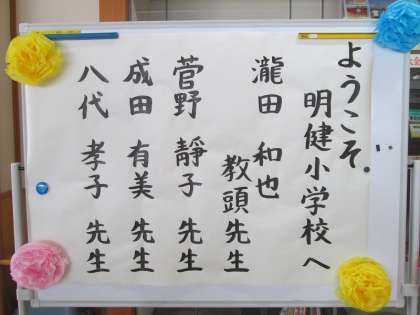 ようこそ。
明健小学校へ
瀧田 和也
教頭先生
菅野 靜子 先生
成田 有美 先生
八代 孝子 先生